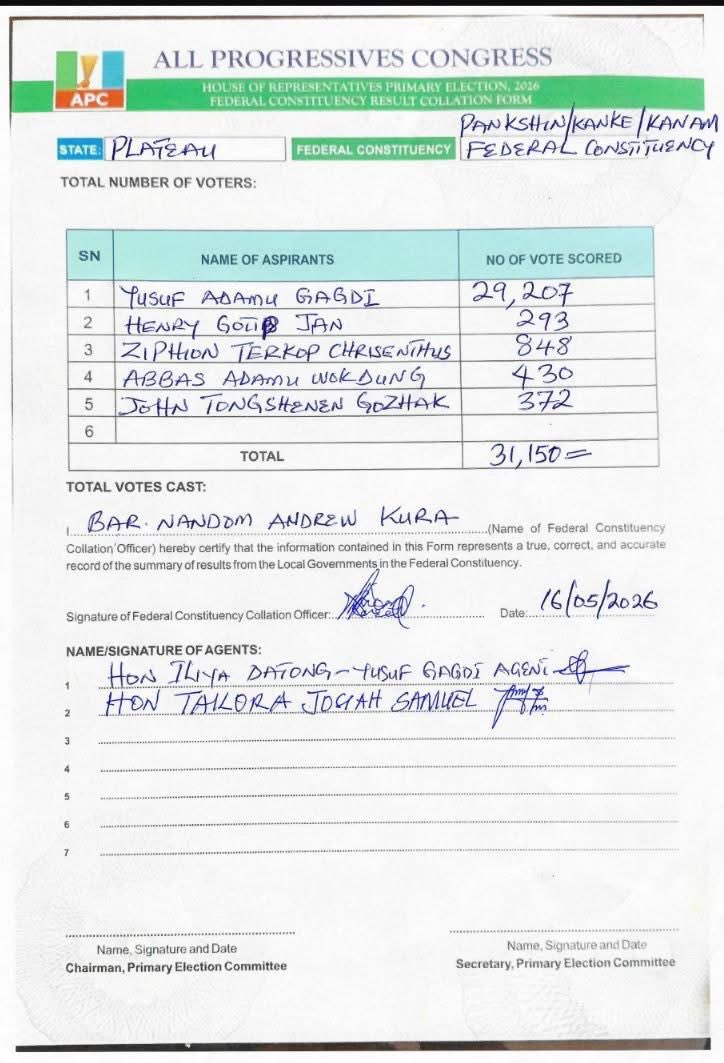 ALL PROGRESSIVES CONGRESS
APC
HOUSE OF REPRESENTATIVES PRIMARY ELECTION, 2026
FEDERAL CONSTITUENCY RESULT COLLATION FORM
STATE: PLATEAU FEDERAL CONSTITUENCY PANKSHIN/KANKE/KANAM
FEDERAL CONSTITUENCY
TOTAL NUMBER OF VOTERS:
SN NAME OF ASPIRANTS NO OF VOTE SCORED
1 YUSUF ADAMU GAGDI 29,207
2 HENRY JAN 293
3 ZIPHION TERKOP CHRISENTHUS 848
4 ABBAS ADAMU WOKDUNG 430
5 JOHN TONGSHENEN GOZHAK 372
6
TOTAL 31,150=
TOTAL VOTES CAST:
I BAR. NANDOM ANDREW KURA (Name of Federal Constituency
Collation Officer) hereby certify that the information contained in this Form represents a true, correct, and accurate
record of the summary of results from the Local Governments in the Federal Constituency.
Signature of Federal Constituency Collation Officer: Date: 16/05/2026
NAME/SIGNATURE OF AGENTS:
1 HON ILIYA DATONG - YUSUF GAGDI AGENT
2 HON TAILORA JOSIAH SAMUEL
3
4
5
6
7
Name, Signature and Date Name, Signature and Date
Chairman, Primary Election Committee Secretary, Primary Election Committee